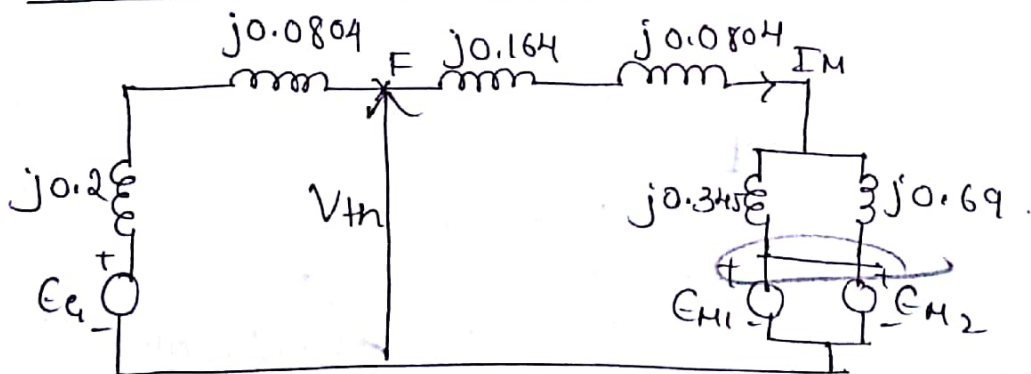 j0.0804
F
j0.164
j0.0804
IM
j0.2
Vth
j0.345
j0.69
+
EG
-
+
EM1
-
+
EM2
-